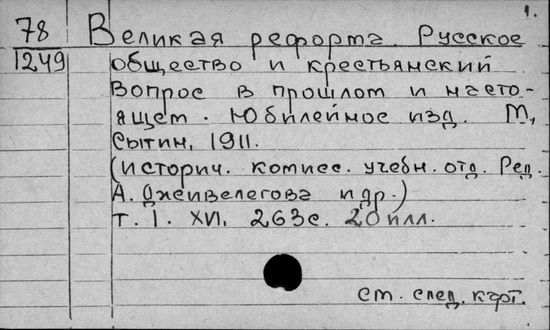 1.
78 Великая реформа. Русское
1249 общество и крестьянский
вопрос в прошлом и насто-
ящем. Юбилейное изд. М,
Сытин, 1911.
(историч. комисс. учебн. отд. Ред.
А. Дживелегова и др.)
т. I. XVI, 263 с. 20 илл.
см. след. карт.